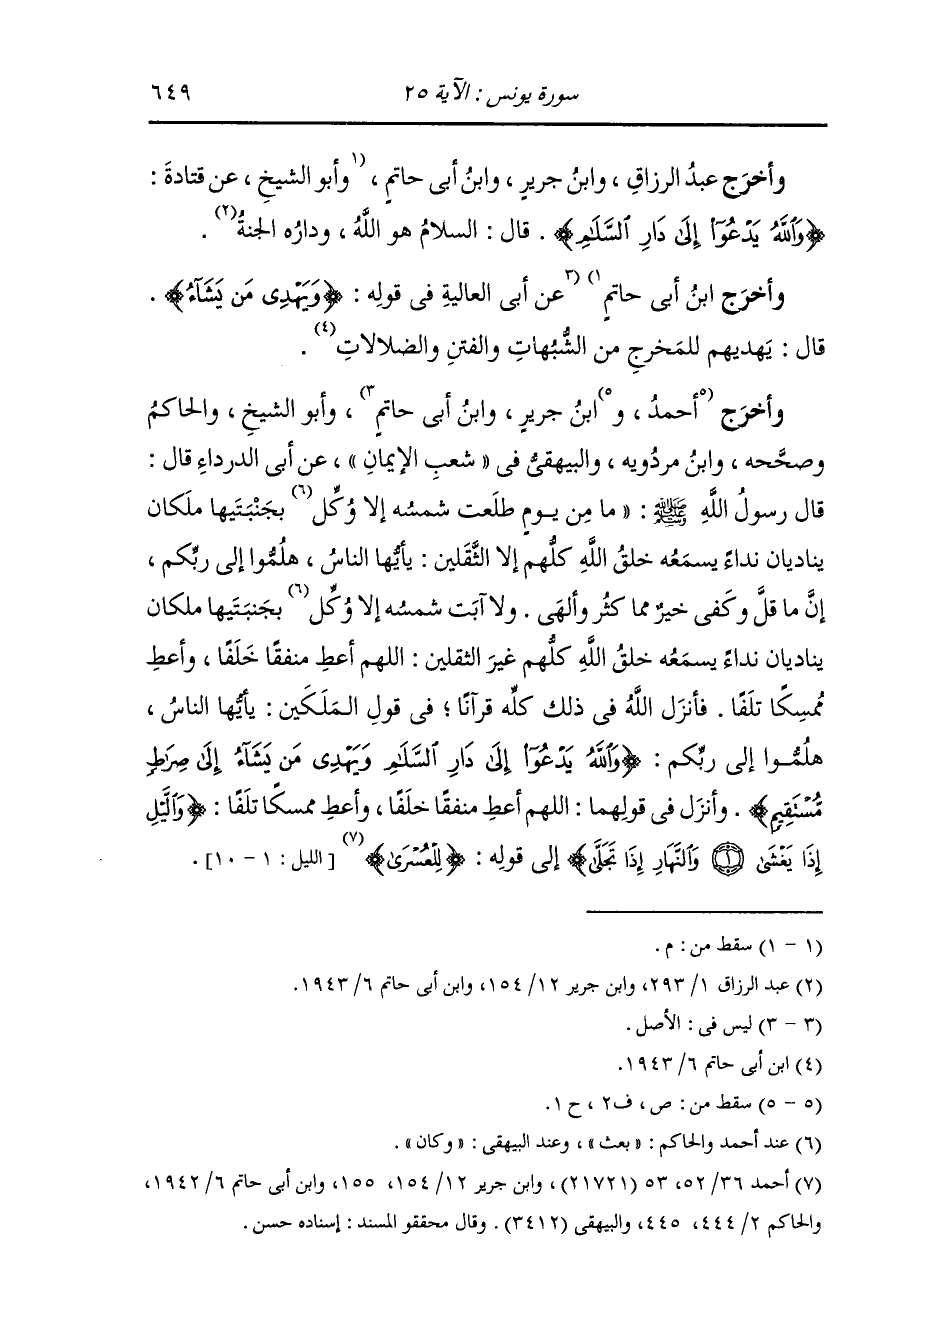 سورة يونس : الآية ٢٥ ٦٤٩
وأخرَج عبدُ الرزاقِ ، وابنُ جريرٍ ، وابنُ أبى حاتمٍ ، (١وأبو الشيخِ ، عن قتادةَ :
﴿وَٱللَّهُ يَدْعُوٓا۟ إِلَىٰ دَارِ ٱلسَّلَٰمِ﴾ . قال : السلامُ هو اللَّهُ ، ودارُه الجنةُ(٢) .
وأخرَج ابنُ أبى حاتمٍ١) (٣عن أبى العاليةِ فى قولِه : ﴿وَيَهْدِى مَن يَشَآءُ﴾ .
قال : يَهديهم للمَخرجِ من الشُّبُهاتِ والفتنِ والضلالاتِ(٤) .
وأخرَج (٥أحمدُ ، و٥)ابنُ جريرٍ ، وابنُ أبى حاتمٍ٣) ، وأبو الشيخِ ، والحاكمُ
وصحَّحه ، وابنُ مردُويه ، والبيهقىُّ فى « شعبِ الإيمانِ » ، عن أبى الدرداءِ قال :
قال رسولُ اللَّهِ ﷺ : « ما مِن يومٍ طلَعت شمسُه إلا وُكِّل(٦) بجَنْبَتَيها ملَكان
يناديان نداءً يسمَعُه خلقُ اللَّهِ كلُّهم إلا الثَّقَلين : يأيُّها الناسُ ، هلُمُّوا إلى ربِّكم ،
إنَّ ما قلَّ وكَفى خيرٌ مما كثُر وألهَى . ولا آبَت شمسُه إلا وُكِّل(٦) بجَنبَتَيها ملكان
يناديان نداءً يسمَعُه خلقُ اللَّهِ كلُّهم غيرَ الثقلين : اللهم أعطِ منفقًا خَلَفًا ، وأعطِ
مُمسِكًا تلَفًا . فأنزَل اللَّهُ فى ذلك كلِّه قرآنًا ؛ فى قولِ المَلَكَين : يأيُّها الناسُ ،
هلُمُّوا إلى ربِّكم : ﴿وَٱللَّهُ يَدْعُوٓا۟ إِلَىٰ دَارِ ٱلسَّلَٰمِ وَيَهْدِى مَن يَشَآءُ إِلَىٰ صِرَٰطٍ
مُّسْتَقِيمٍ﴾ . وأنزَل فى قولِهما : اللهم أعطِ منفقًا خلَفًا ، وأعطِ ممسكًا تلَفًا : ﴿وَٱلَّيْلِ
إِذَا يَغْشَىٰ ۝١ وَٱلنَّهَارِ إِذَا تَجَلَّىٰ﴾ إلى قولِه : ﴿لِلْعُسْرَىٰ﴾(٧) [ الليل : ١ - ١٠] .
(١ - ١) سقط من : م .
(٢) عبد الرزاق ١/ ٢٩٣، وابن جرير ١٢/ ١٥٤، وابن أبى حاتم ٦/ ١٩٤٣.
(٣ - ٣) ليس فى : الأصل .
(٤) ابن أبى حاتم ٦/ ١٩٤٣.
(٥ - ٥) سقط من : ص ، ف٢ ، ح ١.
(٦) عند أحمد والحاكم : « بعث » ، وعند البيهقى : « وكان » .
(٧) أحمد ٣٦/ ٥٢، ٥٣ (٢١٧٢١) ، وابن جرير ١٢/ ١٥٤، ١٥٥، وابن أبى حاتم ٦/ ١٩٤٢،
والحاكم ٢/ ٤٤٤، ٤٤٥، والبيهقى (٣٤١٢) . وقال محققو المسند : إسناده حسن .